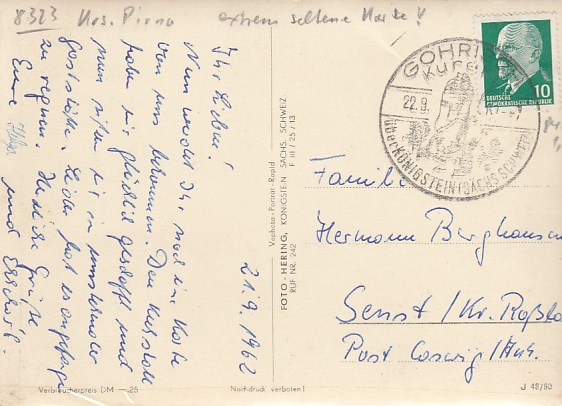 8323 Krs. Pirna extrem seltene Marke!
Ihr Lieben!
Nun werdet Ihr noch eine Karte
von uns bekommen. Den
haben wir glücklich geschafft und
nun sitzen wir in
Gaststätte. Leider hat es angefangen
zu regnen. Herzliche Grüße
Eure Helga
und Eberhard.
21.9.1962
Verbraucherpreis DM —.25
Nachdruck verboten!
Vephota-Porträt-Rapid
FOTO-HERING, KÖNIGSTEIN SÄCHS. SCHWEIZ
RUF NR. 242 F III / 25 / 13
GOHRISCH
Kurort
22.9.
über KÖNIGSTEIN (SÄCHS. SCHWEIZ)
DEUTSCHE
DEMOKRATISCHE REPUBLIK
10
Familie
Hermann Berghausen
Senst / Kr. Roßlau
Post Coswig / Anh.
J 48/60